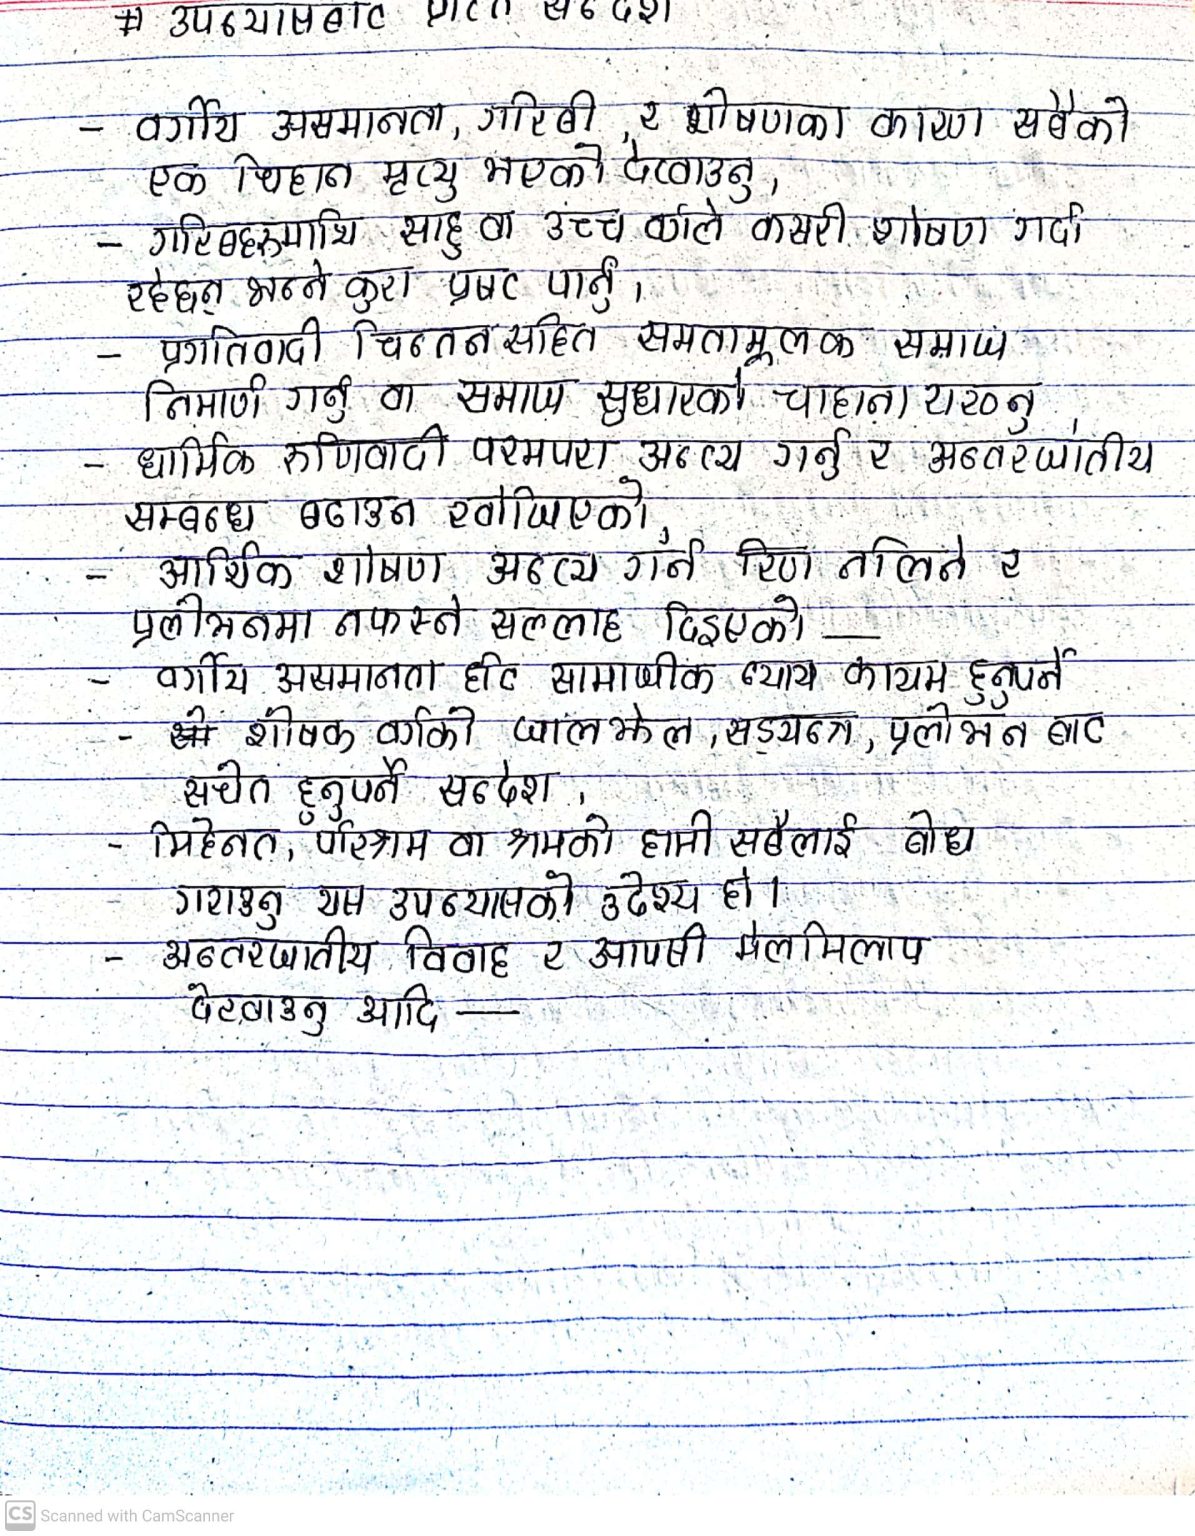 # उपन्यासबाट प्राप्त सन्देश
- वर्गीय असमानता, गरिबी, र शोषणका कारण सबैको
एक चिहान मृत्यु भएको देखाउनु,
- गरिबहरुमाथि साहु वा उच्च वर्गले कसरी शोषण गर्दा
रहेछन् भन्ने कुरा प्रष्ट पार्नु,
- प्रगतिवादी चिन्तन सहित समतामूलक समाज
निमार्ण गर्नु वा समाज सुधारको चाहाना राख्नु
- धार्मिक रुणिवादी परमपरा अन्त्य गर्नु र अन्तरजातीय
सम्बन्ध बढाउन खोजिएको,
- आर्थिक शोषण अन्त्य गर्न रिण नलिने र
प्रलोभनमा नफस्ने सल्लाह दिइएको —
- वर्गीय असमानता हटि सामाजीक न्याय कायम हुनुपर्ने
- शोषक वर्गको जालझेल, सड्यन्त्र, प्रलोभन बाट
सचेत हुनुपर्ने सन्देश,
- मिहेनत, परिश्रम वा श्रमको हामी सबैलाई बोध
गराउनु यस उपन्यासको उदेश्य हो।
- अन्तरजातीय विवाह र आपसी मेलमिलाप
देखाउनु आदि —
CS Scanned with CamScanner